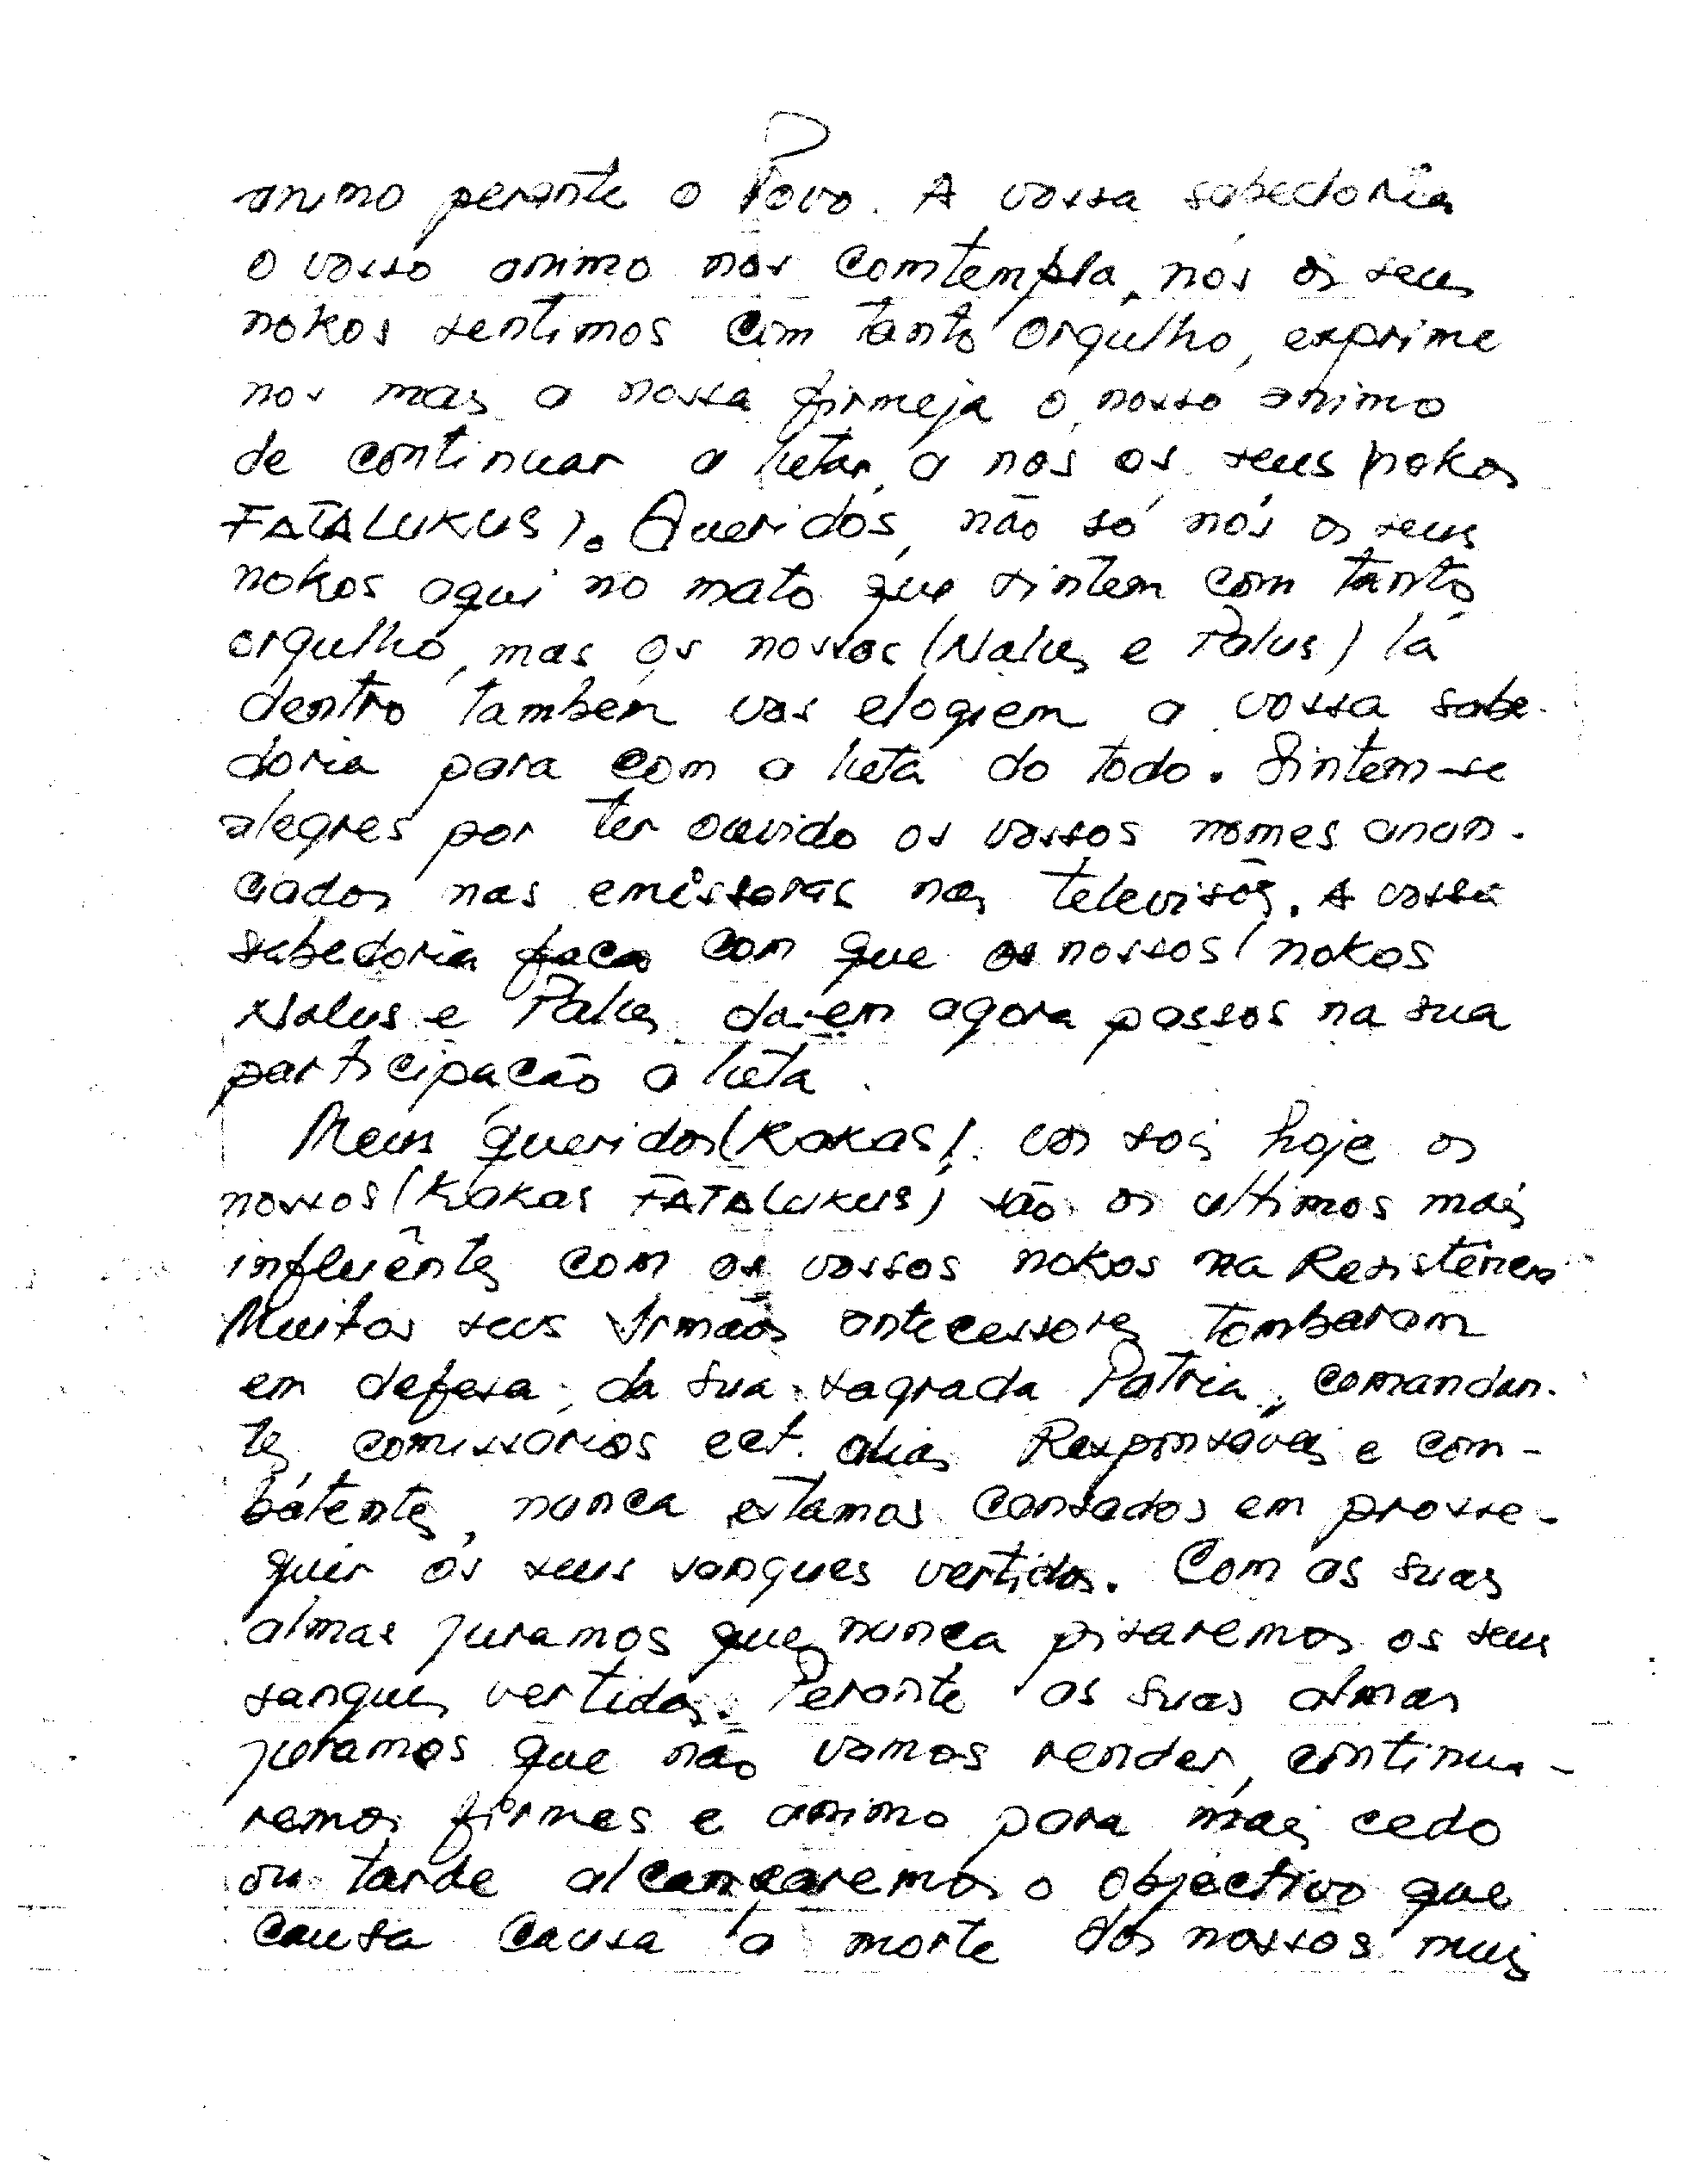 animo perante o Povo. A vossa sabedoria
o vosso animo nos comtempla, nós os seus
nokos sentimos com tanto orgulho, exprime
nos mas a nossa firmeja o nosso animo
de continuar a luta, a nós os seus (nokos
FATALUKUS). Queridos, não só nós os seus
nokos aqui no mato que sintem com tanto
orgulho, mas os nossos (Nalus e Palus) lá
dentro também vos elogiem a vossa sabe-
doria para com a luta do todo. Sintem-se
alegres por ter ouvido os vossos nomes anun-
ciados nas emissoras nas televisões. A vossa
sabedoria faca com que os nossos (nokos
Nalus e Palus darem agora passos na sua
participacão a luta.
Meus queridos (Kakas). vós sois hoje os
nossos (Kakas FATALUKUS) são os ultimos mais
influêntes com os vossos nokos na Resistência
Muitos seus Irmãos antecessores tombaram
em defesa, da sua sagrada Patria, comandan-
tes, comissários ect. alias Responsaveis e com-
bátentes, nunca estamos cansados em prosse-
guir os seus sangues vertidos. Com as suas
almas juramos que nunca pisaremos os seus
sangues vertidos. Perante as suas almas
juramos que não vamos render, continua-
remos firmes e animo para mais cedo
ou tarde alcançaremos o objectivo que
causa causa a morte dos nossos mais